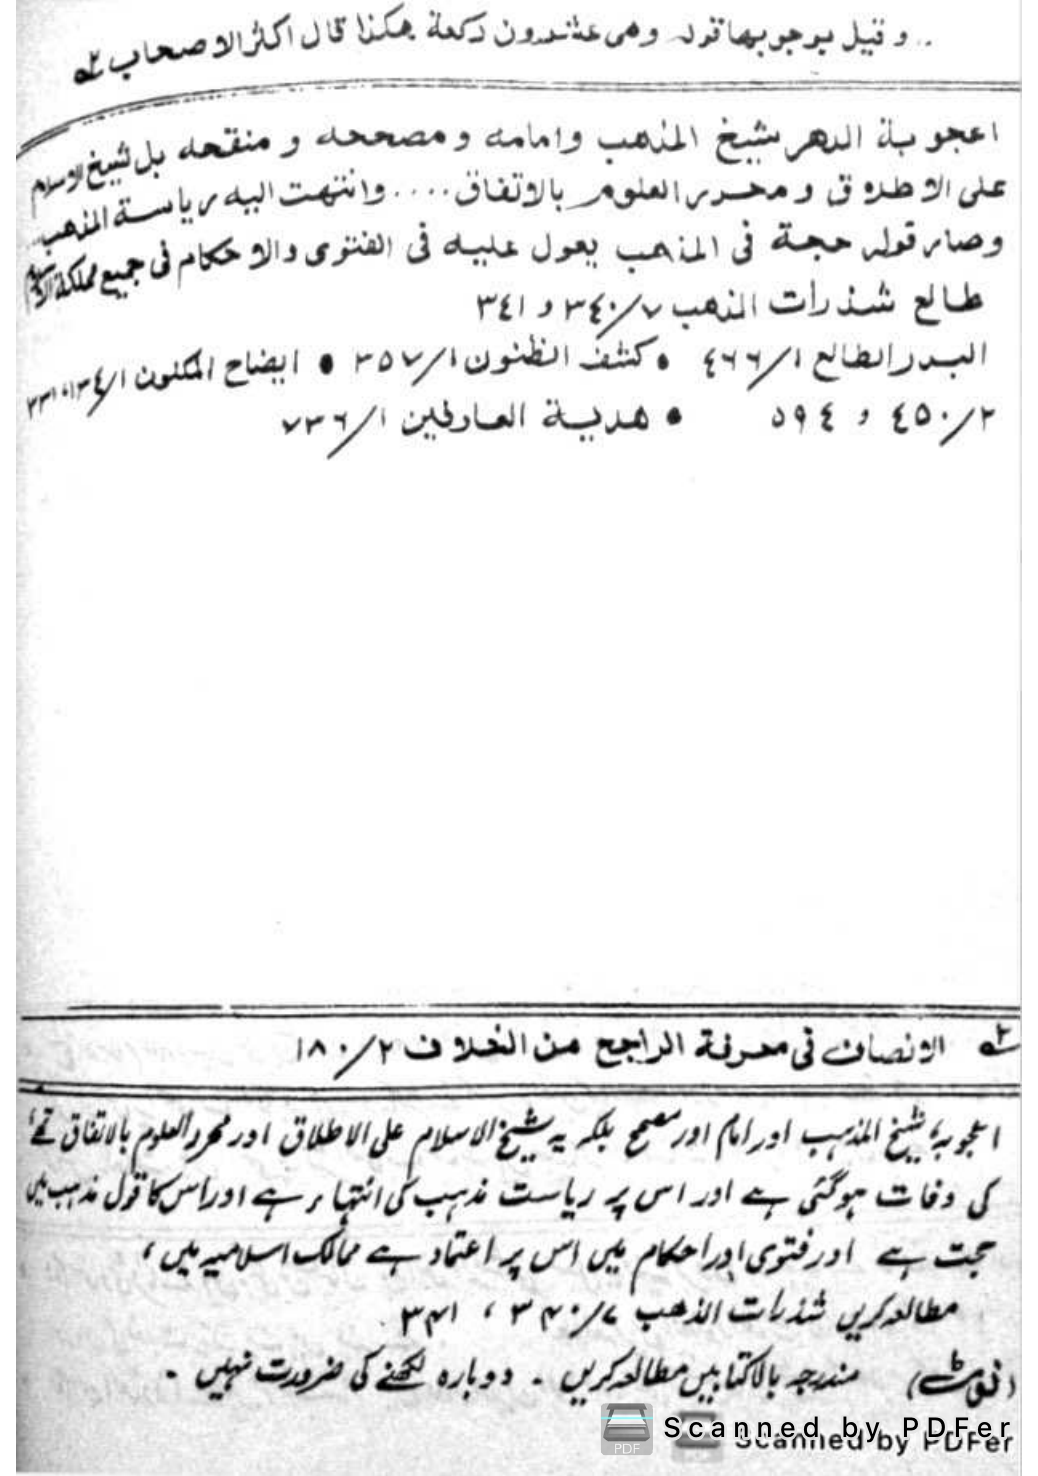 .. وقیل بوجوبها قوله وهی عشرون رکعة هکذا قال اکثر الاصحاب ٢ھ
اعجوبة الدهر شیخ المذهب وامامه ومصححه و منقحه بل شیخ الاسلام
علی الاطلاق و محرر العلوم بالاتفاق .... وانتهت الیه ریاسة المذهب
وصار قوله حجة فی المذهب یعول علیه فی الفتوی والاحکام فی جمیع مملکة
طالع شذرات المذهب ٣٤٠/٧ و ٣٤١
البدر الطالع ٤٦٦/١ • کشف الظنون ٣٥٧/١ • ایضاح المکنون ١٣٤/١،
٤٥٠/٢ و ٥٩٤ • هدیة العارفین ٧٣٦/١
٢ھ الانصاف فی معرفة الراجح من الخلاف ١٨٠/٢
اعجوبہ، شیخ المذہب اور امام اور مصحح بلکہ یہ شیخ الاسلام علی الاطلاق اور محرر العلوم بالاتفاق تھے
کی وفات ہوگئی ہے اور اس پر ریاست مذہب کی انتہاء ہے اور اس کا قول مذہب میں
حجت ہے اور فتوی اور احکام میں اس پر اعتماد ہے ممالک اسلامیہ میں،
مطالعہ کریں شذرات الذھب ٣٤٠/٧ ، ٣٤١
(نوٹ) مندرجہ بالا کتابیں مطالعہ کریں ۔ دوبارہ لکھنے کی ضرورت نہیں ۔
Scanned by PDFer
Scanned by PDFer
PDF